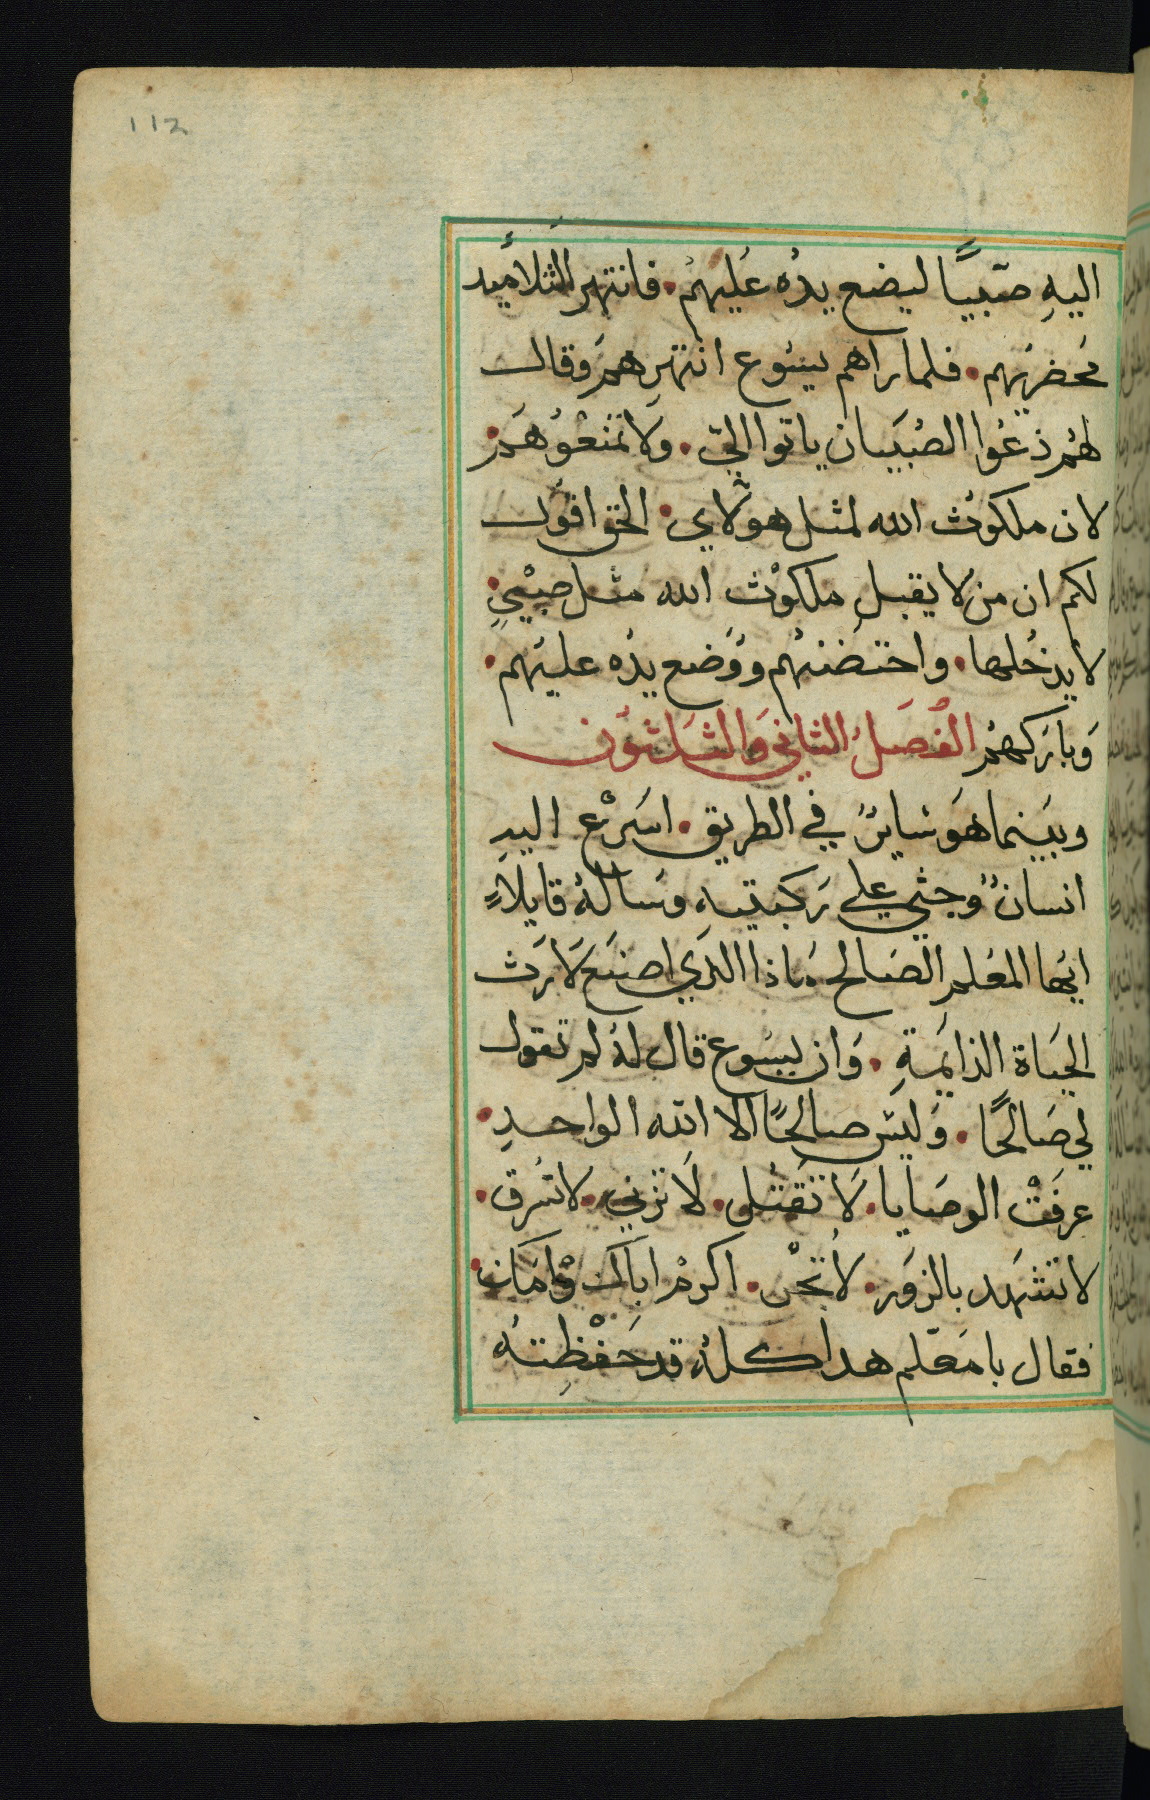 112
اليهِ صبيًا ليضع يدُه عَليهمُ. فانتهر التلاميد
مَحضرِيهم. فلما راهم يسَوع انتهرهمَ وقال
لهُم ذعُوا الصُبَيان ياتوا اليّ. وَلا تمنعُوهَم.
لان ملكوُث الله لمثل هوُلاي. الحق اقول
لكم ان من لا يقبل ملكوْث الله مثل صبيْيٍ.
لا يدخُلها. واحتضنهُم ووَضع يدُه عليهُم.
وَباركهمُ الفصَل الثاني وَالثلثوُن
وبيَنما هوَ سايرٌ في الطريق. اسَرعْ اليهِ
انسانٌ وجثي علي ركبتيهِ وسَالهُ قايلاً
ايُها المعُلمِ الصَالح مَاذا الدَي اصنَع لاَرَث
الحيَاة الدايَمةِ. وَان يسَوع قال لهُ لم تقول
لي صَالحًا. وَليسَ صَالحًا الا الله الواحدِ.
عرفَتْ الوصَايا. لاَ تقَتُل. لاَ تزني. لا تسُرق.
لا تشهَد بالزوَر. لا تخُنْ. اكرمْ ابَاك وْامَك.
فقال يا معَلم هدا كلهُ قد حَفْظِتهُ